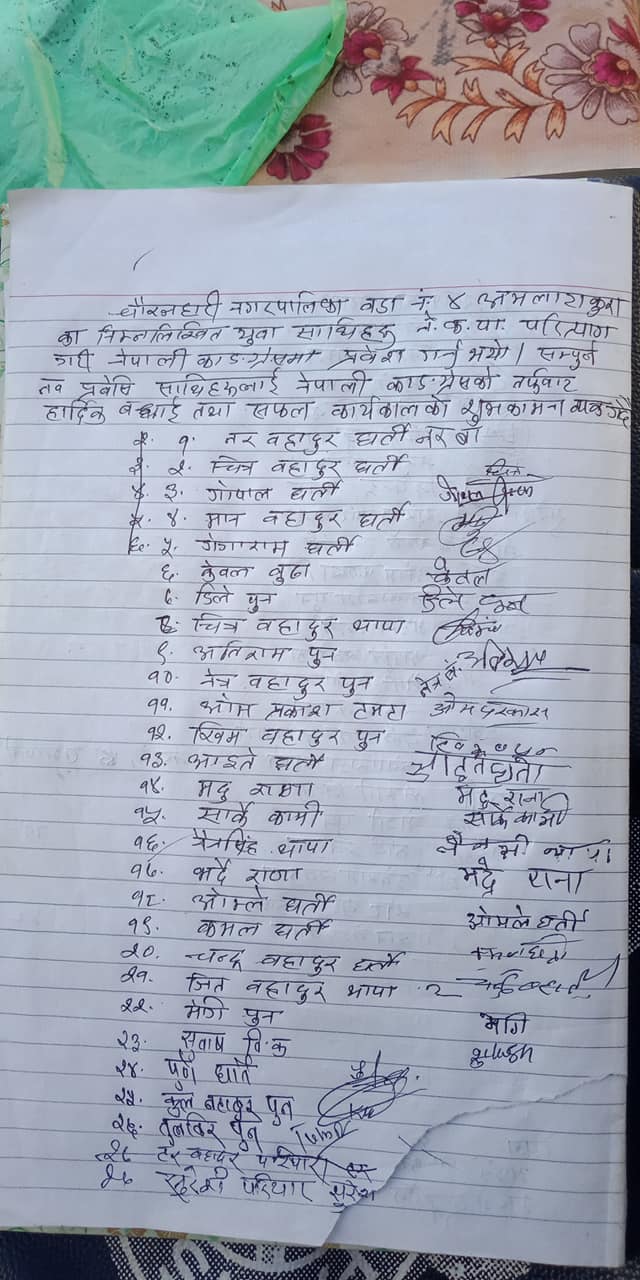 चौरजहारी नगरपालिका वडा नं. ४
का निम्नलिखित युवा साथिहरु ने.क.पा. परित्याग
गरी नेपाली काङग्रेसमा प्रवेश गर्नु भयो। सम्पुर्ण
नव प्रवेषि साथिहरुलाई नेपाली काङग्रेसको तर्फवाट
हार्दिक बधाई तथा सफल कार्यकालको शुभकामना
१. नर वहादुर घर्ती नर ब
२. चित्र वहादुर घर्ती
३. गोपाल घर्ती
४. मान वहादुर घर्ती
५. गंगाराम घर्ती
६. केवल वुढा केवल
डिले पुन डिले
चित्र वहादुर थापा
९. अतिराम पुन
१०. नेत्र वहादुर पुन
११. ओम प्रकाश टमटा ओम प्रकास
१२. खिम वहादुर पुन
१३. आइते घर्ती आइते घर्ती
१४. मदु राणा मदु राना
१५. सार्के कामी सार्के कामी
१६. जैनसिंह थापा
१७. भदै राणा भदै राना
१८. ओम्ले घर्ती
१९. कमल घर्ती ओमले घर्ती
२०. चन्द्र वहादुर घर्ती
२१. जित वहादुर थापा २
२२. मेगि पुन मेगि
२३. सुवाष वि.क
२४. पुर्ण घर्ति
२५. कुल बहादुर पुन
२६. तुलविर पुन
परियार
परियार सुरेश